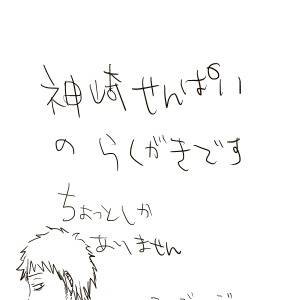 神崎せんぱい
のらくがきです
ちょっとしか
ありません